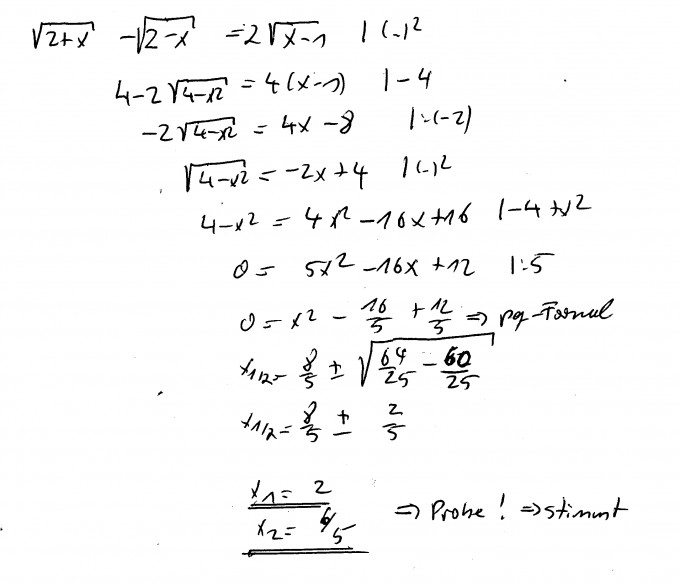 √(2+x) - √(2-x) = 2√(x-1) | (..)²
4-2√(4-x²) = 4(x-1) | -4
-2√(4-x²) = 4x -8 | :(-2)
√(4-x²) = -2x+4 | (..)²
4-x² = 4x² -16x+16 | -4 +x²
0 = 5x² -16x +12 | :5
0 = x² - 16/5 + 12/5 ⇒ pq-Formel
x1/2 = 8/5 ± √(64/25 - 60/25)
x1/2 = 8/5 ± 2/5
x1 = 2
x2 = 6/5 ⇒ Probe! ⇒ stimmt